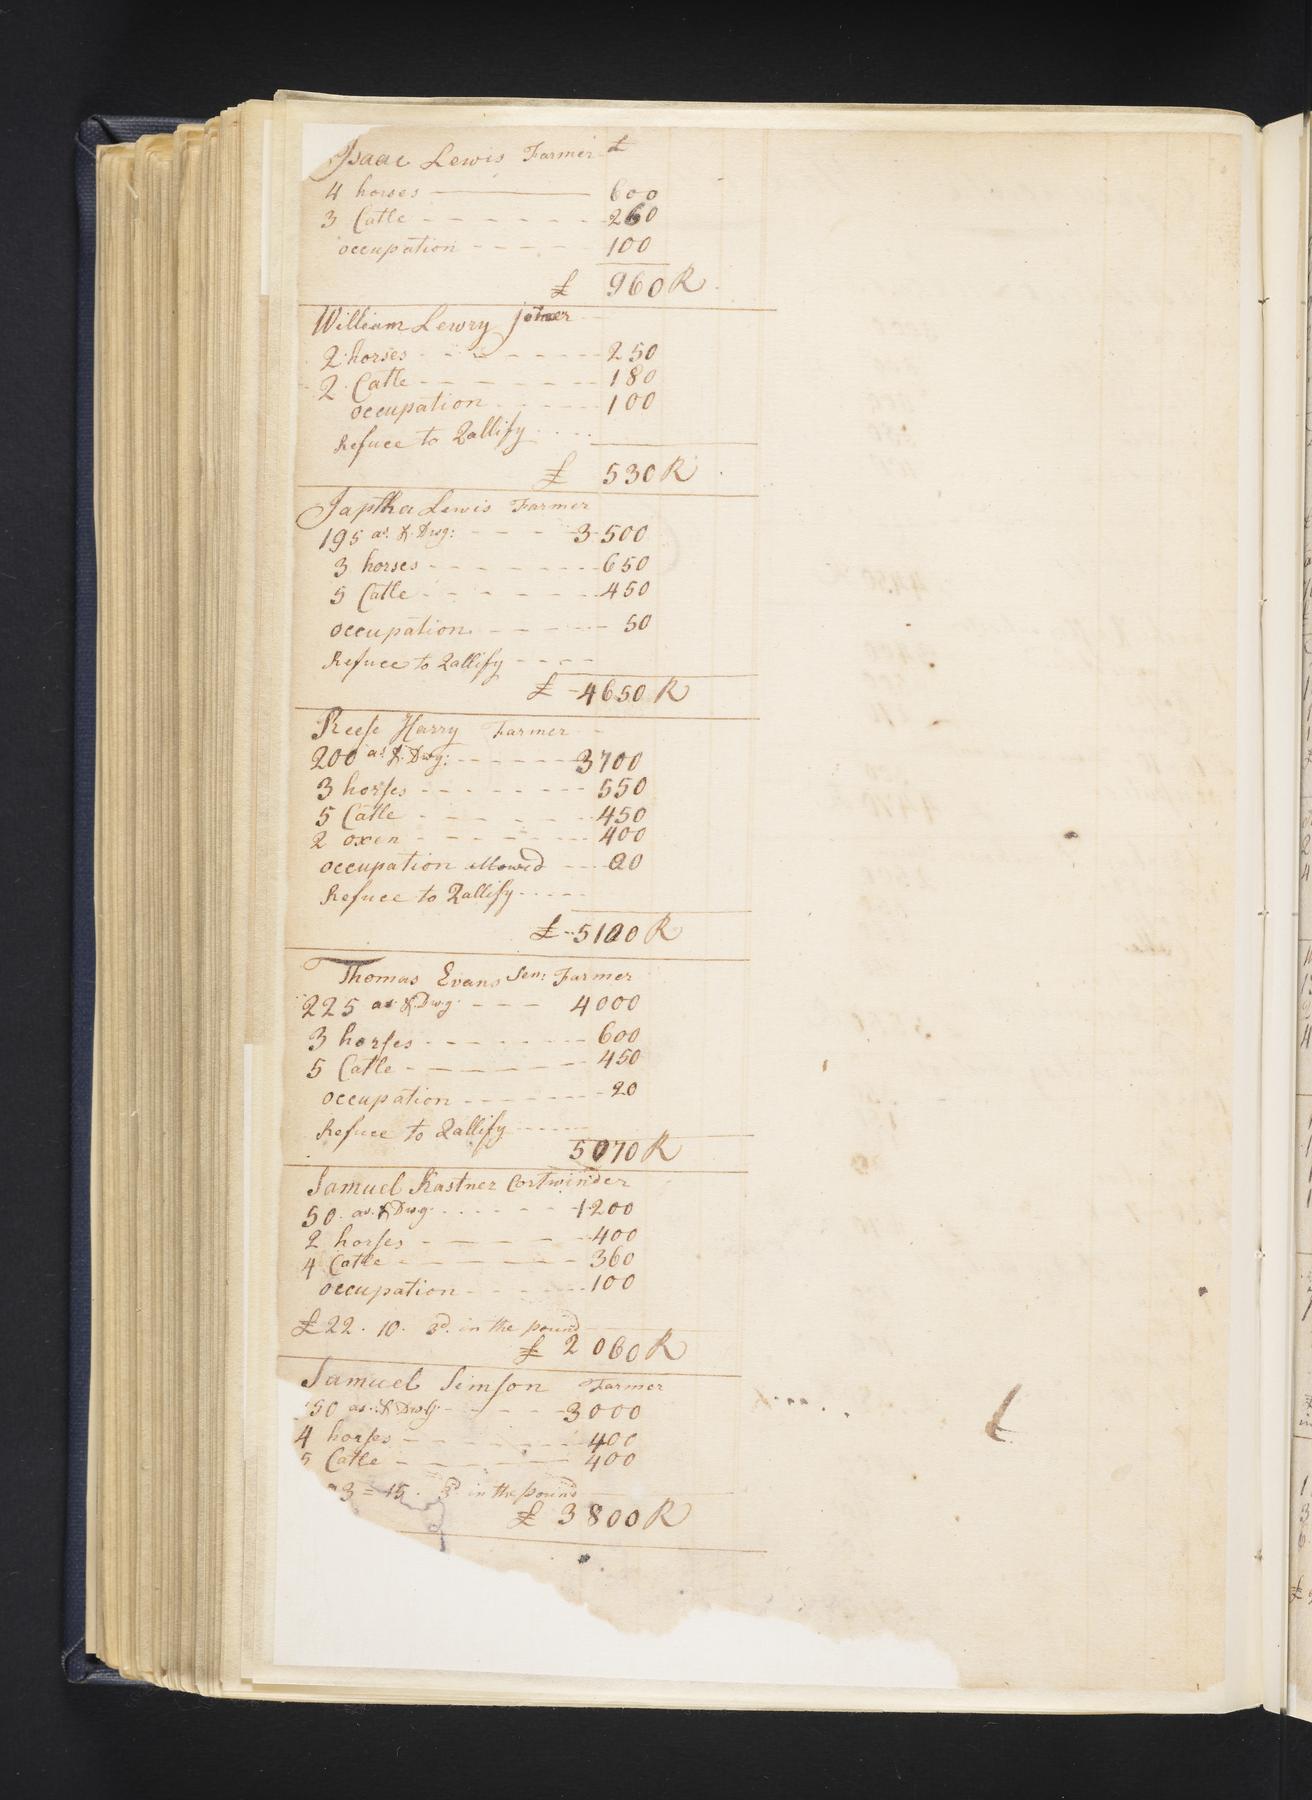 Isaac Lewis Farmer £
4 horses 600
3 Catle 260
occupation 100
£ 960 R
William Lewry joiner
2 horses 250
2 Catle 180
occupation 100
Refuce to Qallify
£ 530 R
Japtha Lewis Farmer
195 as. & Dwg: 3500
3 horses 650
5 Catle 450
occupation 50
Refuce to Qallify
£ 4650 R
Reese Harry Farmer
200 as. & Dwg: 3700
3 horses 550
5 Catle 450
2 oxen 400
occupation allowed 00
Refuce to Qallify
£ 5100 R
Thomas Evans Sen: Farmer
225 as. & Dwg 4000
3 horses 600
5 Catle 450
occupation 20
Refuce to Qallify
5070 R
Samuel Kastner Cortwinder
50 as. & Dwg 1200
2 horses 400
4 Catle 360
occupation 100
£22. 10. 3d. in the pound
£ 2060 R
Samuel Simson Farmer
50 as. & Dwg 3000
4 horses 400
5 Catle 400
3 = 15. 3d in the pound
£ 3800 R